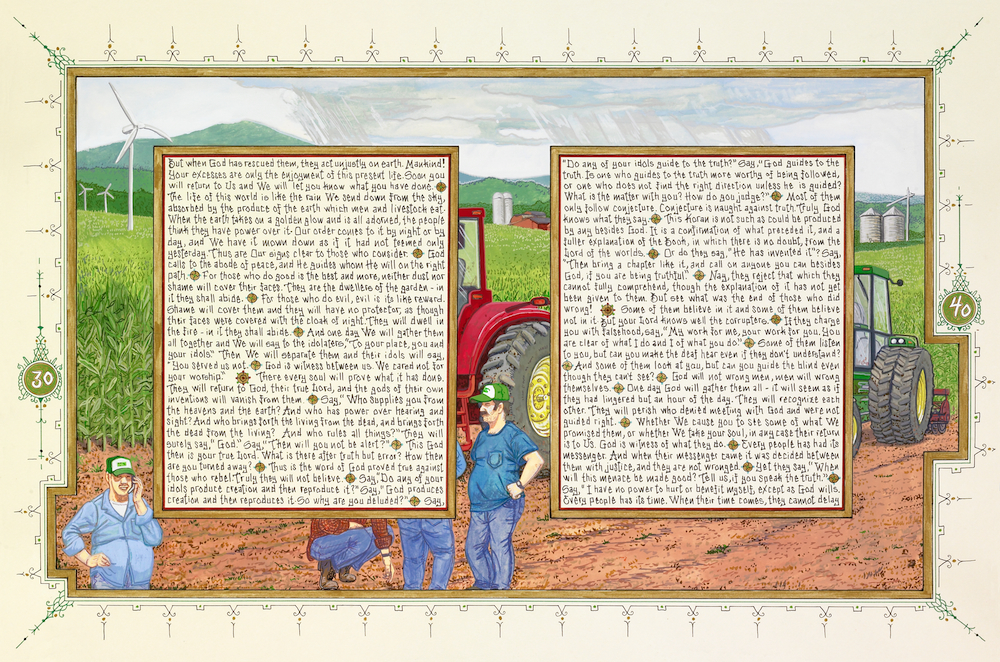 But when God has rescued them, they act unjustly on earth. Mankind!
Your excesses are only the enjoyment of this present life. Soon you
will return to Us and We will let you know what you have done.
The life of this world is like the rain We send down from the sky,
absorbed by the produce of the earth which men and livestock eat.
When the earth takes on a golden glow and is all adorned, the people
think they have power over it. Our order comes to it by night or by
day, and We have it mown down as if it had not teemed only
yesterday. Thus are Our signs clear to those who consider. God
calls to the abode of peace, and He guides whom He will on the right
path. For those who do good is the best and more, neither dust nor
shame will cover their faces. They are the dwellers of the garden - in
it they shall abide. For those who do evil, evil is its like reward.
Shame will cover them and they will have no protector, as though
their faces were covered with the cloak of night. They will dwell in
the fire - in it they shall abide. And one day We will gather them
all together and We will say to the idolaters, "To your place, you and
your idols." Then We will separate them and their idols will say,
"You served us not. God is witness between us. We cared not for
your worship." There every soul will prove what it has done.
They will return to God, their true Lord, and the gods of their own
inventions will vanish from them. Say, "Who supplies you from
the heavens and the earth? And who has power over hearing and
sight? And who brings forth the living from the dead, and brings forth
the dead from the living? And who rules all things?" They will
surely say, "God." Say, "Then will you not be alert?" This God
then is your true Lord. What is there after truth but error? How then
are you turned away? Thus is the word of God proved true against
those who rebel. Truly they will not believe. Say, "Do any of your
idols produce creation and then reproduce it?" Say, "God produces
creation and then reproduces it. So why are you deluded?" Say,
"Do any of your idols guide to the truth?" Say, "God guides to the
truth. Is one who guides to the truth more worthy of being followed,
or one who does not find the right direction unless he is guided?
What is the matter with you? How do you judge?" Most of them
only follow conjecture. Conjecture is naught against truth. Truly God
knows what they say. This Koran is not such as could be produced
by any besides God. It is a confirmation of what preceded it, and a
fuller explanation of the Book, in which there is no doubt, from the
Lord of the worlds. Or do they say, "He has invented it"? Say,
"Then bring a chapter like it, and call on anyone you can besides
God, if you are being truthful." Nay, they reject that which they
cannot fully comprehend, though the explanation of it has not yet
been given to them. But see what was the end of those who did
wrong! Some of them believe in it and some of them believe
not in it. But your Lord knows well the corrupters. If they charge
you with falsehood, say, "My work for me, your work for you. You
are clear of what I do and I of what you do." Some of them listen
to you, but can you make the deaf hear even if they don't understand?
And some of them look at you, but can you guide the blind even
though they can't see? God will not wrong men, men will wrong
themselves. One day God will gather them all - it will seem as if
they had lingered but an hour of the day. They will recognize each
other. They will perish who denied meeting with God and were not
guided right. Whether We cause you to see some of what We
promised them, or whether We take your soul, in any case their return
is to Us. God is witness of what they do. Every people has had its
messenger. And when their messenger came it was decided between
them with justice, and they are not wronged. Yet they say, "When
will this menace be made good? Tell us, if you speak the truth."
Say, "I have no power to hurt or benefit myself, except as God wills.
Every people has its time. When their time comes, they cannot delay
30
40